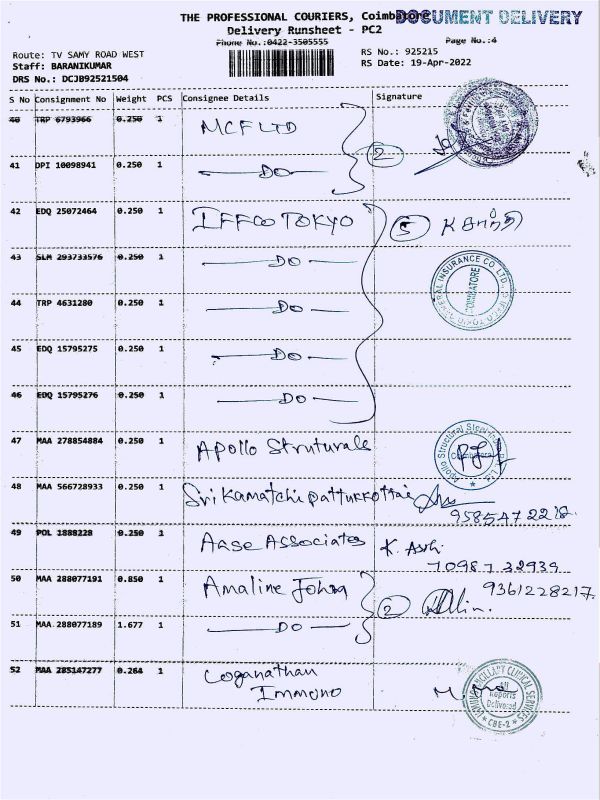 THE PROFESSIONAL COURIERS, Coimbatore
DOCUMENT DELIVERY
Delivery Runsheet - PC2
Phone No.:0422-3505555
Page No.:4
Route: TV SAMY ROAD WEST
RS No.: 925215
Staff: BARANIKUMAR
RS Date: 19-Apr-2022
DRS No.: DCJB92521504
S No Consignment No Weight PCS Consignee Details Signature
40 TRP 6793966 0.250 1 MCF LTD
2
41 DPI 10098941 0.250 1 DO
42 EDQ 25072464 0.250 1 IFFCO TOKYO 5
43 SLM 293733576 0.250 1 DO
44 TRP 4631280 0.250 1 DO
45 EDQ 15795275 0.250 1 DO
46 EDQ 15795276 0.250 1 DO
47 MAA 278854884 0.250 1 Apollo Struturals
48 MAA 566728933 0.250 1 Sri Kamatchi pattukkottai
49 POL 1888228 0.250 1 Aase Associates
7098732939
50 MAA 288077191 0.850 1 Amaline
9361228217
2
51 MAA 288077189 1.677 1 DO
52 MAA 285147277 0.264 1 Loganathan
Immono
All
Reports
Delivered
CBE-2